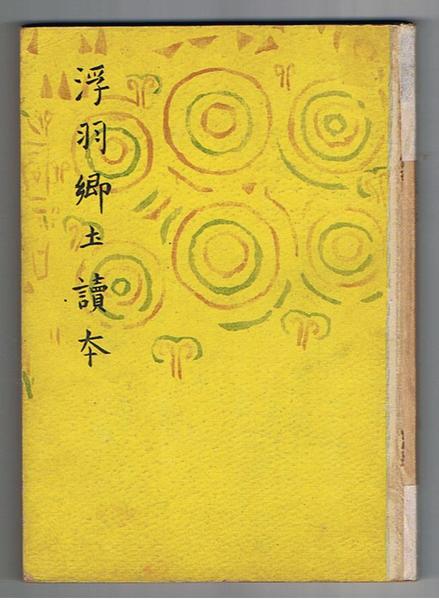 浮羽郷土讀本